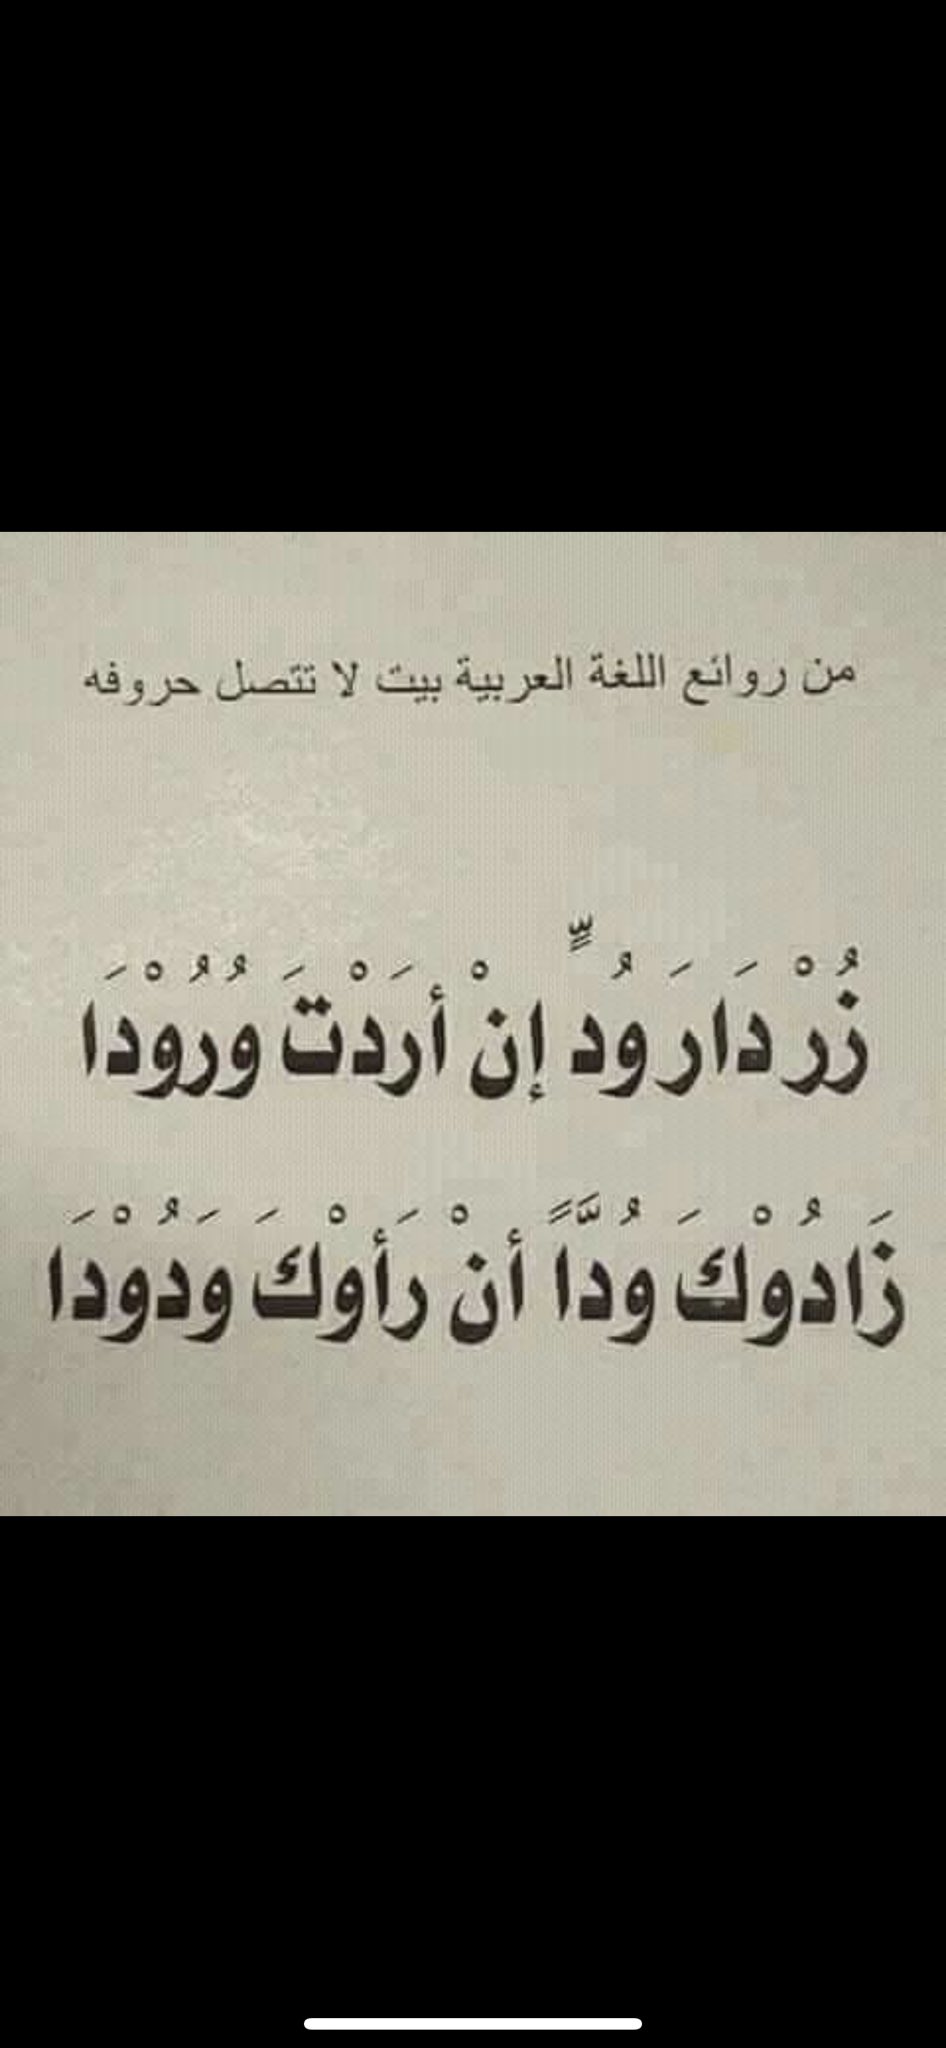 من روائع اللغة العربية بيت لا تتصل حروفه
زُرْ دَارَ وُدٍّ إنْ أرَدْتَ وُرُوْدَا
زَادُوْكَ وُدَّاً أنْ رَأوْكَ وَدُوْدَا